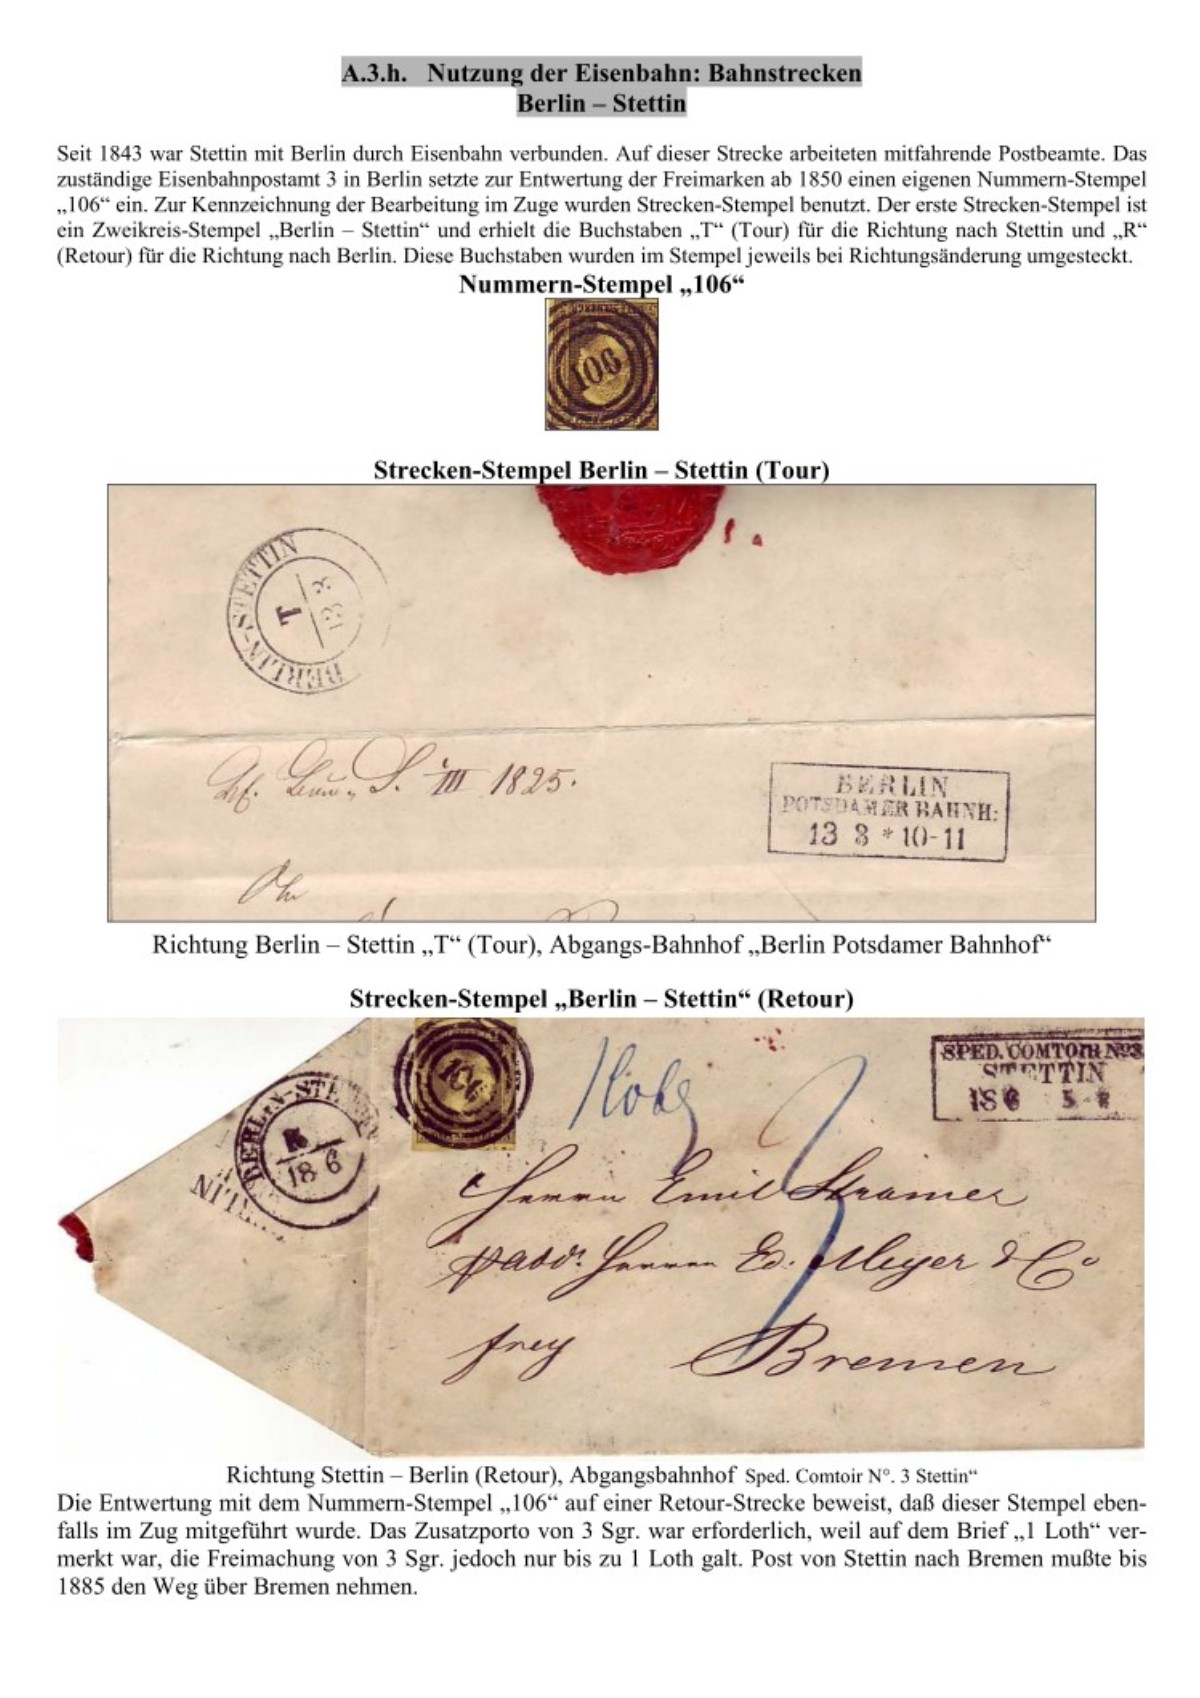 A.3.h. Nutzung der Eisenbahn: Bahnstrecken
Berlin – Stettin
Seit 1843 war Stettin mit Berlin durch Eisenbahn verbunden. Auf dieser Strecke arbeiteten mitfahrende Postbeamte. Das
zuständige Eisenbahnpostamt 3 in Berlin setzte zur Entwertung der Freimarken ab 1850 einen eigenen Nummern-Stempel
„106“ ein. Zur Kennzeichnung der Bearbeitung im Zuge wurden Strecken-Stempel benutzt. Der erste Strecken-Stempel ist
ein Zweikreis-Stempel „Berlin – Stettin“ und erhielt die Buchstaben „T“ (Tour) für die Richtung nach Stettin und „R“
(Retour) für die Richtung nach Berlin. Diese Buchstaben wurden im Stempel jeweils bei Richtungsänderung umgesteckt.
Nummern-Stempel „106“
106
Strecken-Stempel Berlin – Stettin (Tour)
BERLIN-STETTIN
T
13 3
BERLIN
III 1825.
BERLIN
POTSDAMER BAHNH:
13 3 * 10-11
Richtung Berlin – Stettin „T“ (Tour), Abgangs-Bahnhof „Berlin Potsdamer Bahnhof“
Strecken-Stempel „Berlin – Stettin“ (Retour)
BERLIN-STE
R
18 6
106
SPED. COMTOIR No 3
STETTIN
18 6 5-
Herrn Emil Stramer
p addr. Herren Ed. Meyer & Co
frey Bremen
Richtung Stettin – Berlin (Retour), Abgangsbahnhof Sped. Comtoir N°. 3 Stettin“
Die Entwertung mit dem Nummern-Stempel „106“ auf einer Retour-Strecke beweist, daß dieser Stempel eben-
falls im Zug mitgeführt wurde. Das Zusatzporto von 3 Sgr. war erforderlich, weil auf dem Brief „1 Loth“ ver-
merkt war, die Freimachung von 3 Sgr. jedoch nur bis zu 1 Loth galt. Post von Stettin nach Bremen mußte bis
1885 den Weg über Bremen nehmen.